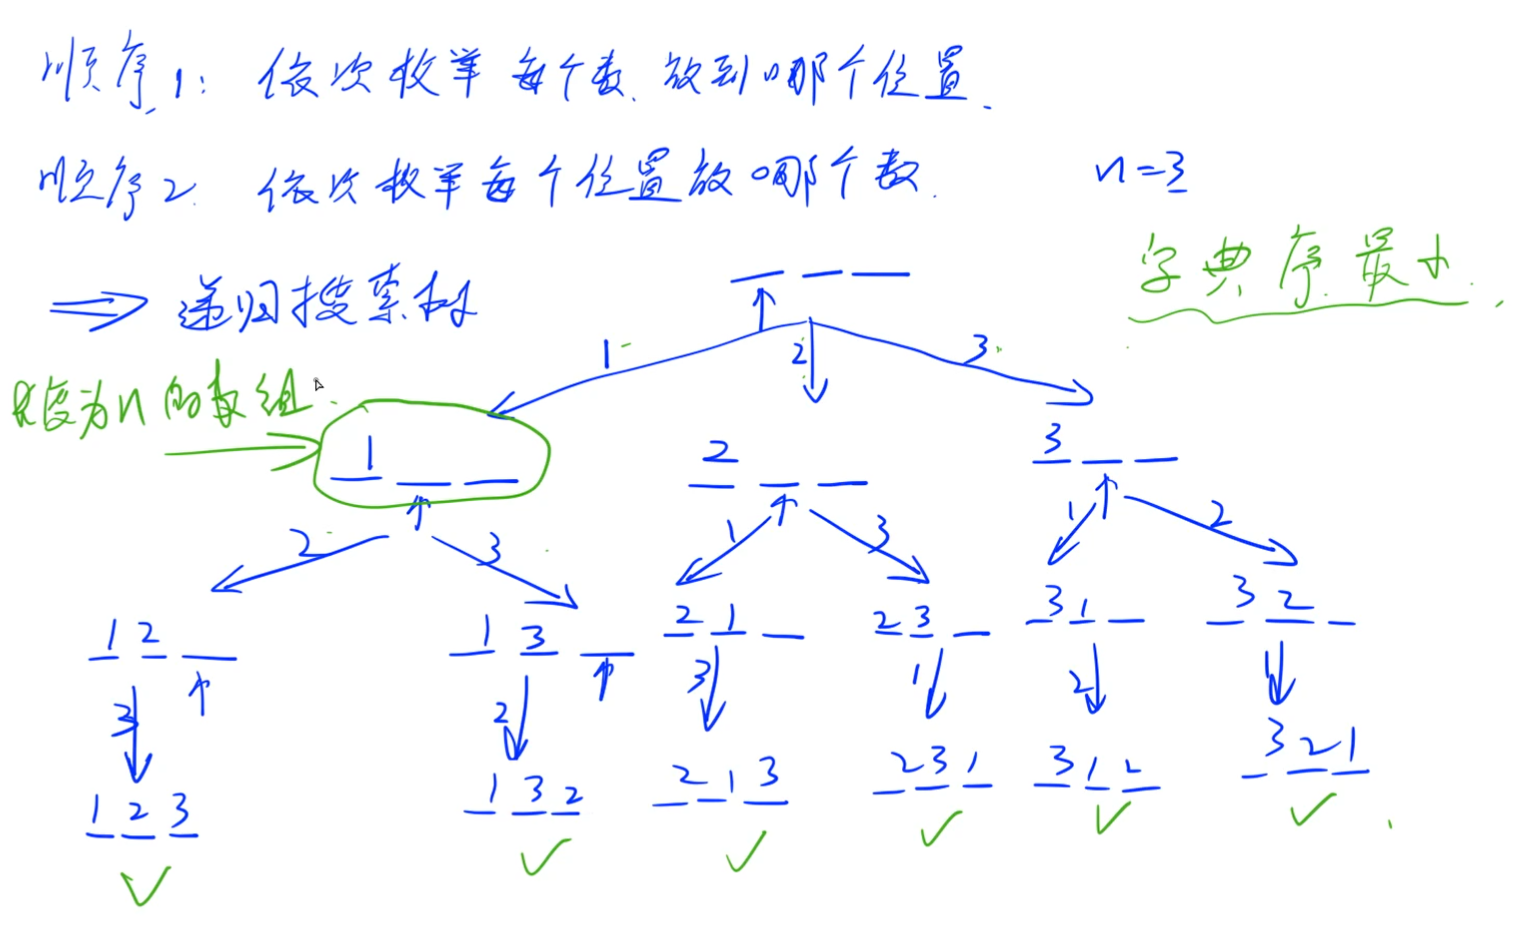 顺序1: 依次枚举每个数放到哪个位置.
顺序2 依次枚举每个位置放哪个数.
n=3
字典序最小
⇒ 递归搜索树
长度为n的数组
1 2 3
1 2 3
2 3 1 3 1 2
1 2 1 3 2 1 2 3 3 1 3 2
3 2 3 1 2 1
1 2 3 1 3 2 2 1 3 2 3 1 3 1 2 3 2 1